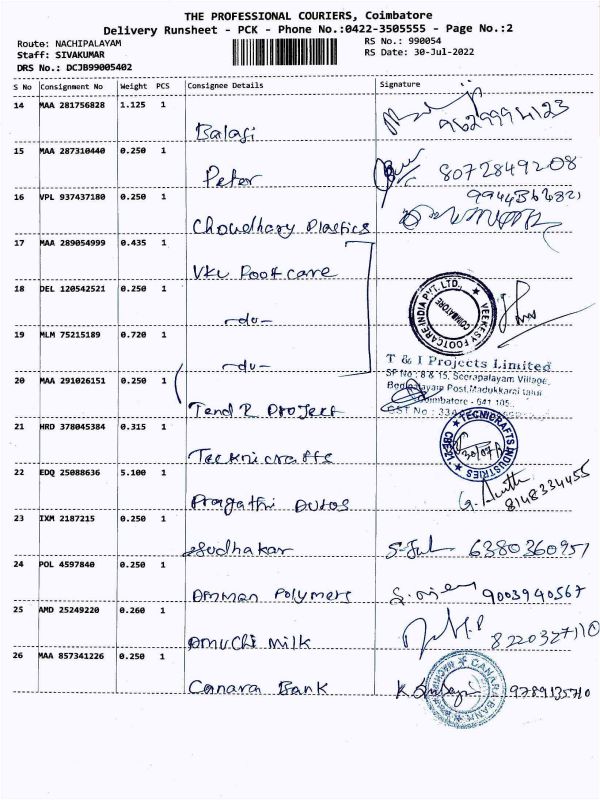 THE PROFESSIONAL COURIERS, Coimbatore
Delivery Runsheet - PCK - Phone No.:0422-3505555 - Page No.:2
Route: NACHIPALAYAM
RS No.: 990054
Staff: SIVAKUMAR
RS Date: 30-Jul-2022
DRS No.: DCJB99005402
S No Consignment No Weight PCS Consignee Details Signature
14 MAA 281756828 1.125 1
Balaji
15 MAA 287310440 0.250 1
Peter 8072849208
16 VPL 937437180 0.250 1
Choudhary Plastics
17 MAA 289054999 0.435 1
VKV Footcare
18 DEL 120542521 0.250 1
-do-
VEEKESY FOOTCARE INDIA PVT. LTD.
COIMBATORE
19 MLM 75215189 0.720 1
-do-
T & I Projects Limited
SF No : 8 & 15, Seerapalayam Village,
Post, Madukkarai taluk
Coimbatore - 641 105.
GST No : 33A
20 MAA 291026151 0.250 1
Tend R Project
21 HRD 378045384 0.315 1
Tecknicraffs
TECNICRAFTS INDUSTRIES
CBE-21
22 EDQ 25088636 5.100 1
Pragathi Autos
8148334455
23 IXM 2187215 0.250 1
Sudhakar 6380360957
24 POL 4597840 0.250 1
Amman Polymers 9003940567
25 AMD 25249220 0.260 1
Amuchi Milk 8220327110
26 MAA 857341226 0.250 1
Canara Bank 9789135710
CANARA BANK